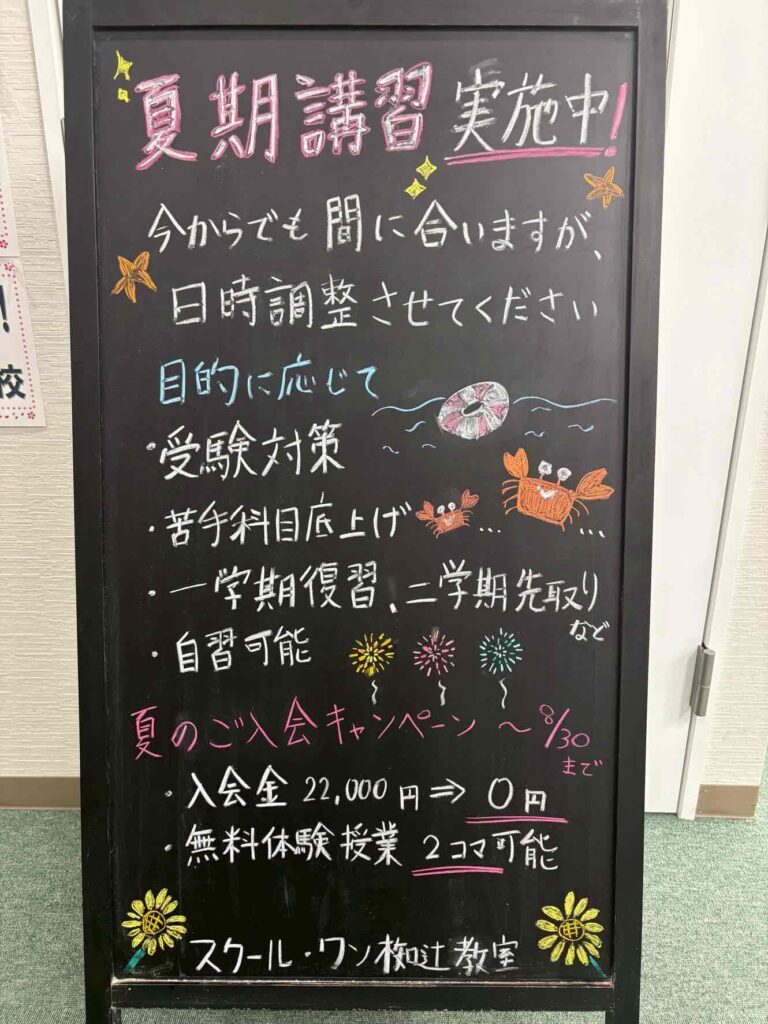 夏期講習 実施中!
今からでも間に合いますが、
日時調整させてください
目的に応じて
・受験対策
・苦手科目底上げ
・一学期復習、二学期先取り
など
・自習可能
夏のご入会キャンペーン ～8/30
まで
・入会金 22,000円⇒0円
・無料体験授業 2コマ可能
スクール・ワン椥辻教室
!
校